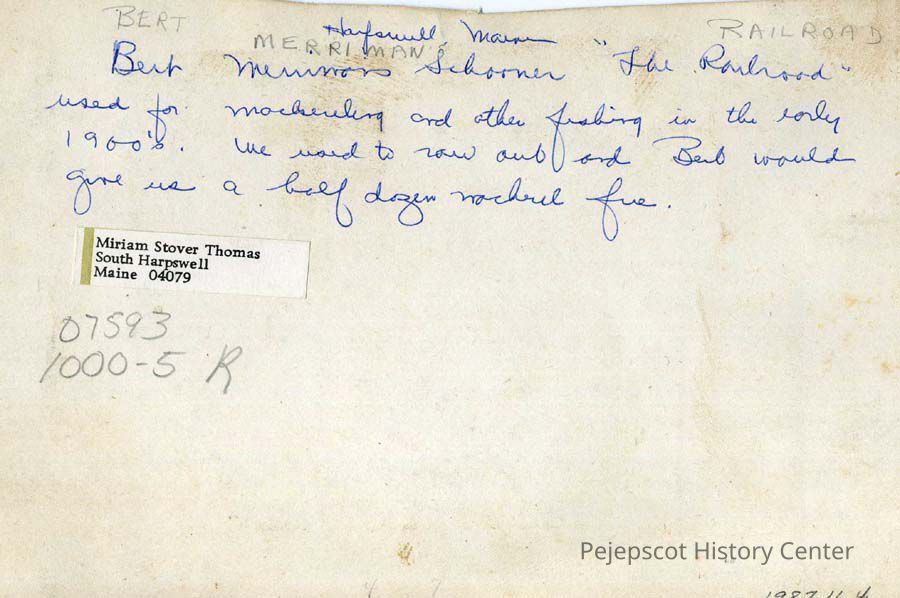 BERT MERRIMAN'S RAILROAD
Harpswell Maine
Bert Merrimans Schooner "The Railroad"
used for mackereling and other fishing in the early
1900's. We used to row out and Bert would
give us a half dozen mackrel free.
Miriam Stover Thomas
South Harpswell
Maine 04079
07593
1000-5 R
Pejepscot History Center